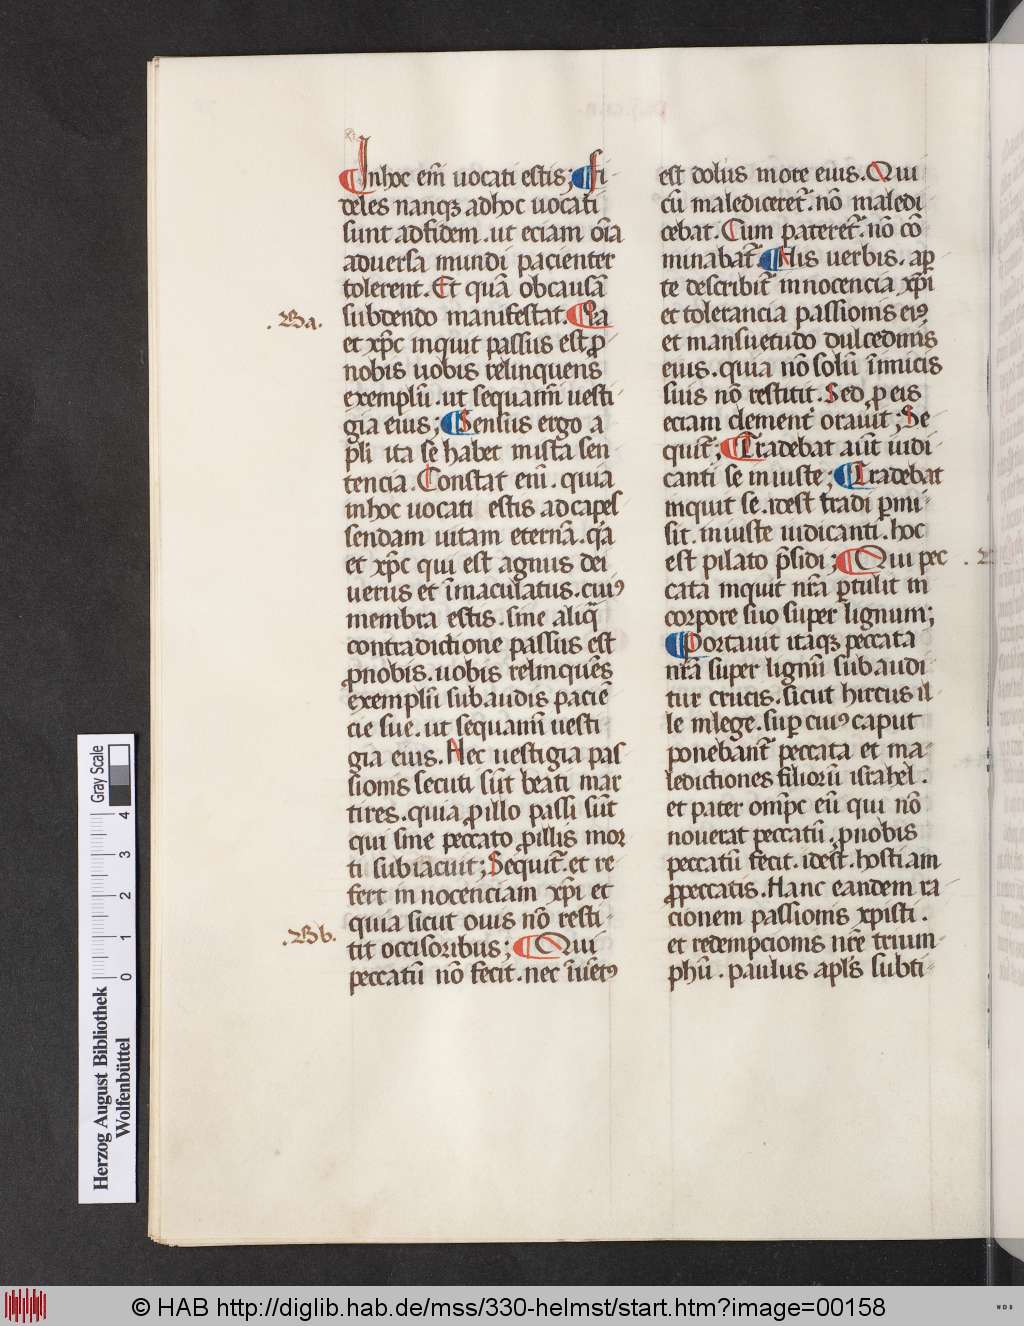 Inhoc em̄ uocati estis; Fi
deles nanqꝫ adhoc uocati
sunt adfidem. ut eciam oīa
aduersa mundi pacienter
tolerent. Et quā obcausā
subdendo manifestat. Q̄a
.Ba.
et xp̄c inquit passus est ꝓ
nobis uobis relinquens
exemplū. ut sequamī uesti
gia eius; Sensus ergo a
pl̄i ita se habet mista sen
tencia. Constat eni̅. quia
inhoc uocati estis adcapes
sendam uitam eternā. q̄a
et xp̄c qui est agnus dei
uerus et īmaculatus. cuiꝰ
membra estis. sine aliq̄
contradictione passus est
ꝓnobis. uobis relinquēs
exemplū subaudis paciē
cie sue. ut sequamī uesti
gia eius. Nec uestigia pas
sionis secuti sūt beati mar
tires. quia ꝓillo passi sūt
qui sine peccato ꝓillis mor
ti subiacuit; Sequit̄. et re
fert innocenciam xp̄i et
quia sicut ouis nō resti
tit occisoribus; Qui
.Bb.
peccatū nō fecit. nec īuētꝰ
est dolus inore eius. Qui
cū malediceret̄. nō maledi
cebat. Cum pateret̄. nō cō
minabat̄. His uerbis. aꝑ
te describit̄ innocencia xp̄i
et tolerancia passionis eiꝰ
et mansuetudo dulcedinis
eius. quia nō solū īimicis
suis nō restitit. Sed ꝓ eis
eciam clement̄ orauit; Se
quit̄; Tradebat aūt iudi
canti se iniuste; Tradebat
inquit se. idest tradi ꝑmi
sit. iniuste iudicanti. hoc
est pilato p̄sidi; Qui pec
cata inquit nr̄a ꝑtulit in
corpore suo super lignum;
Portauit itaqꝫ peccata
nr̄a super lignū subaudi
tur crucis. sicut hircus il
le inlege. suꝑ cuiꝰ caput
ponebant̄ peccata et ma
ledictiones filiorū israhel.
et pater omp̄c eū qui nō
nouerat peccatū. ꝓnobis
peccatū fecit. idest. hostiam
ꝓpeccatis. Hanc eandem ra
cionem passionis xpisti.
et redempcionis nr̄e trium
phū. paulus apl̄s subti
Herzog August Bibliothek
Wolfenbüttel
Gray Scale
0 1 2 3 4
© HAB http://diglib.hab.de/mss/330-helmst/start.htm?image=00158